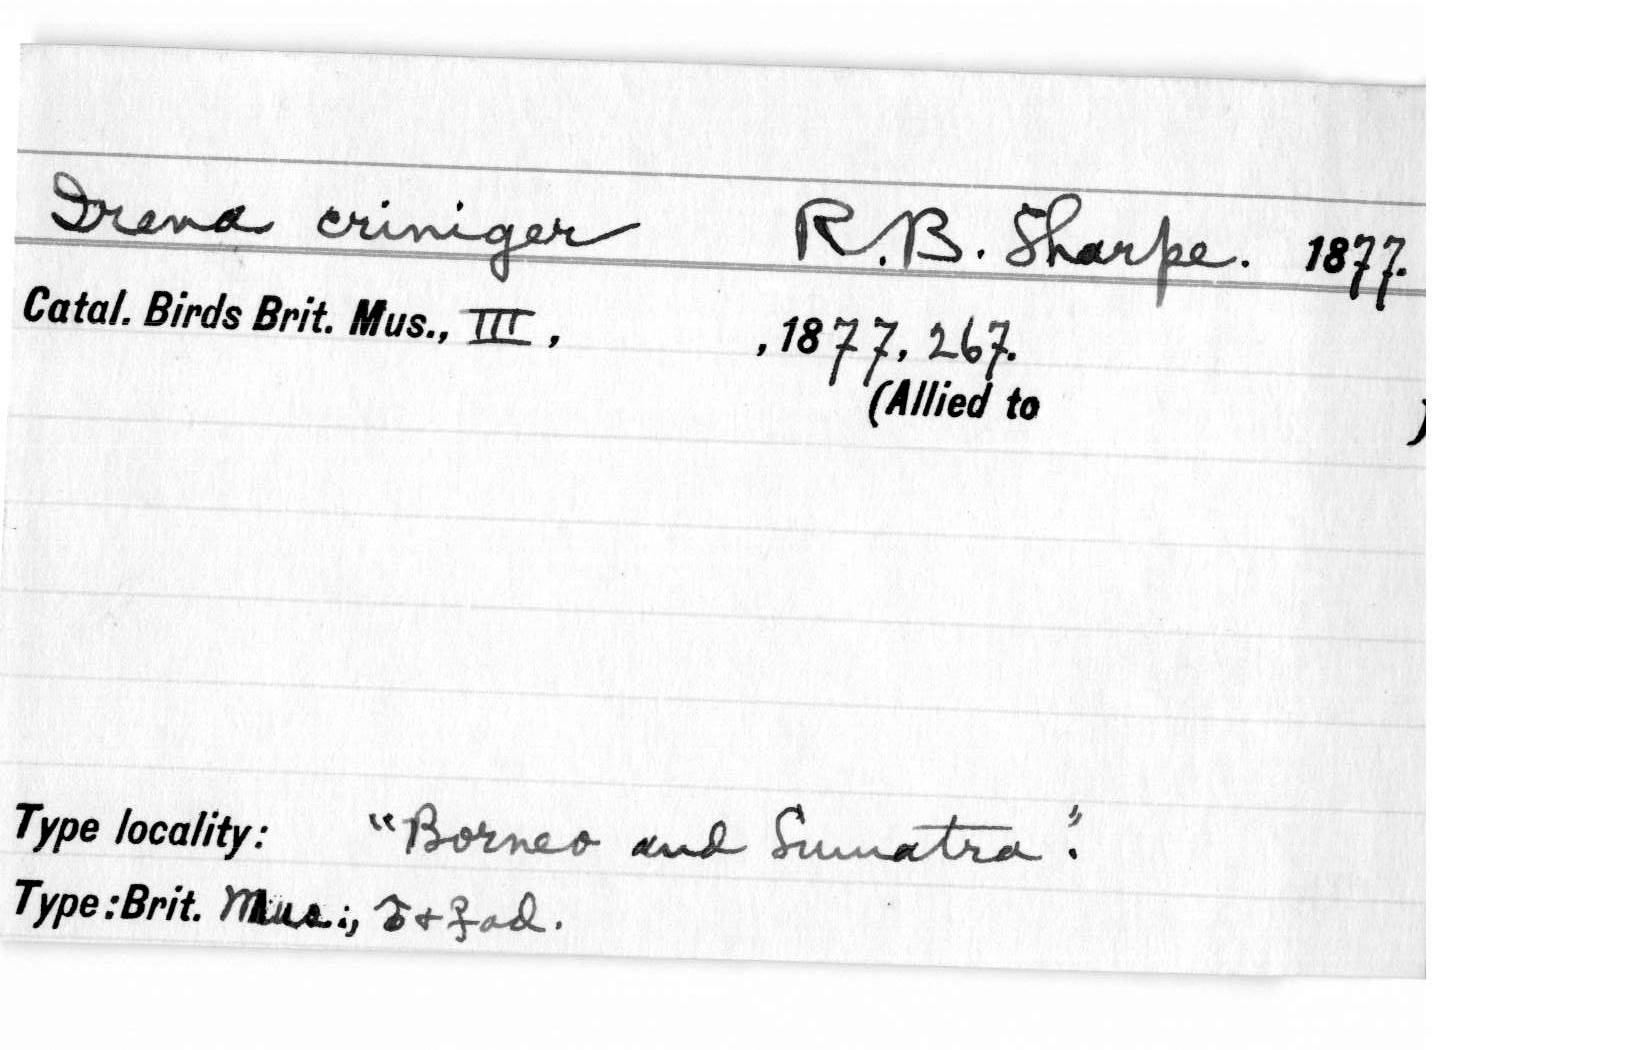 Irena criniger R.B. Sharpe. 1877.
Catal. Birds Brit. Mus., III, , 1877, 267.
(Allied to )
Type locality: "Borneo and Sumatra".
Type: Brit. Mus.:, ♂ + ♀ ad.